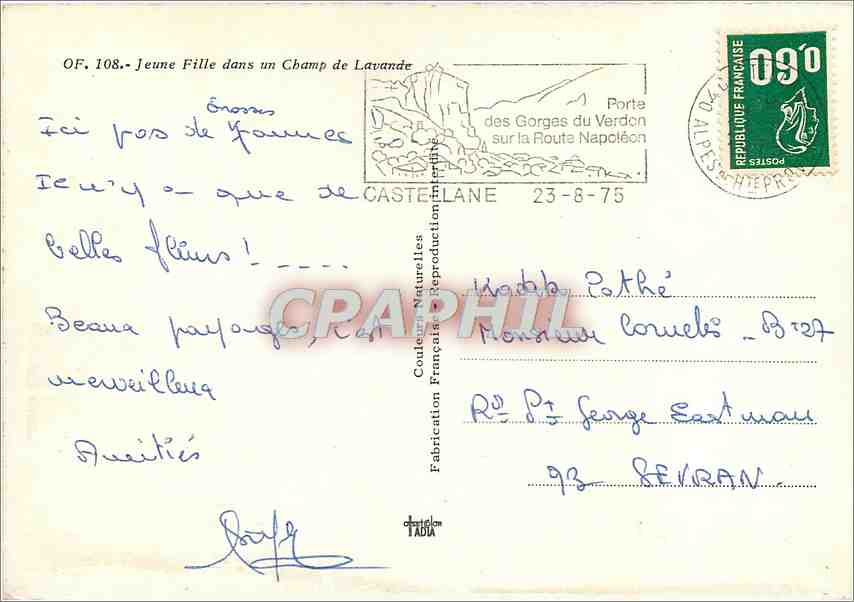 OF. 108.- Jeune Fille dans un Champ de Lavande
Grosses
Ici pas de
Ici n'y a que de
belles fleurs ! ____
Beaux paysages, c'est
merveilleux
Amitiés
Porte
des Gorges du Verdon
sur la Route Napoléon
CASTELLANE 23-8-75
0,60
REPUBLIQUE FRANÇAISE
POSTES
ALPES DE HTE PRO
Couleurs Naturelles
Fabrication Française - Reproduction interdite
CPAPHIL
Kodak Pathé
Monsieur Cornelis - Bt 27
Rd Pt George Eastman
93 SEVRAN.
TADIA